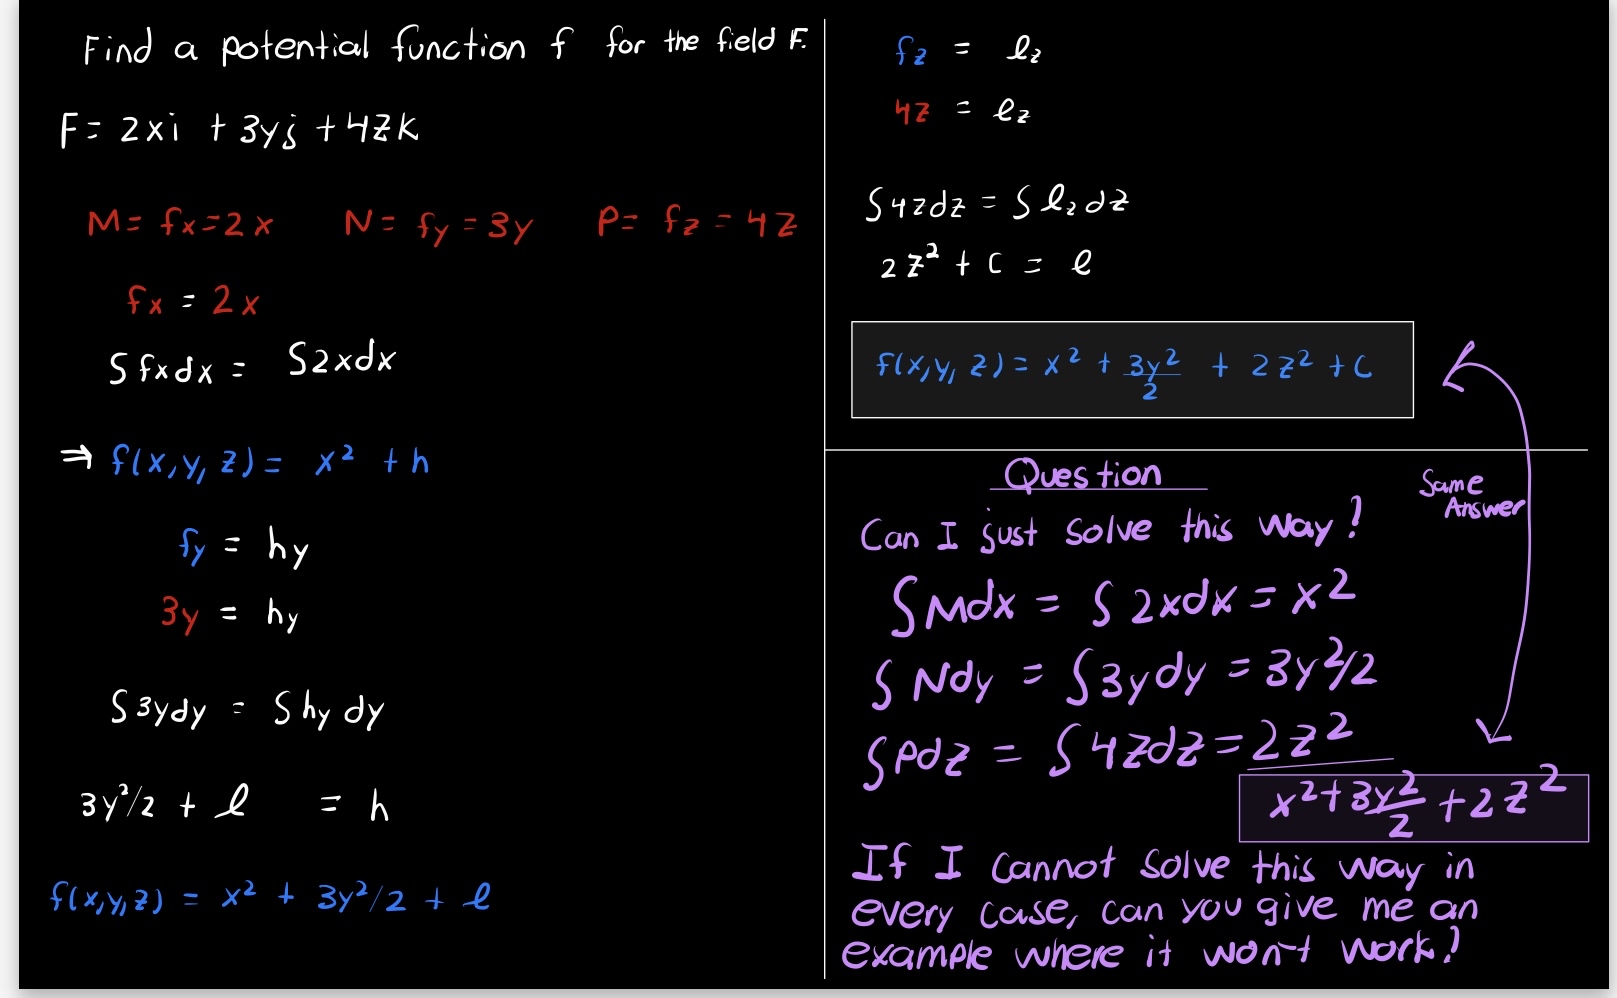 Find a potential function f for the field F.
F = 2xi + 3yj + 4zk
M = fx = 2x N = fy = 3y P = fz = 4z
fx = 2x
∫ fxdx = ∫2xdx
⇒ f(x,y,z) = x² + h
fy = hy
3y = hy
∫3ydy = ∫hy dy
3y²/2 + l = h
f(x,y,z) = x² + 3y²/2 + l
fz = lz
4z = lz
∫4zdz = ∫lzdz
2z² + C = l
f(x,y,z) = x² + 3y²/2 + 2z² + C
Question
Same
Answer
Can I just solve this way?
∫Mdx = ∫2xdx = x²
∫Ndy = ∫3ydy = 3y²/2
∫Pdz = ∫4zdz = 2z²
x² + 3y²/2 + 2z²
If I cannot solve this way in
every case, can you give me an
example where it won't work?